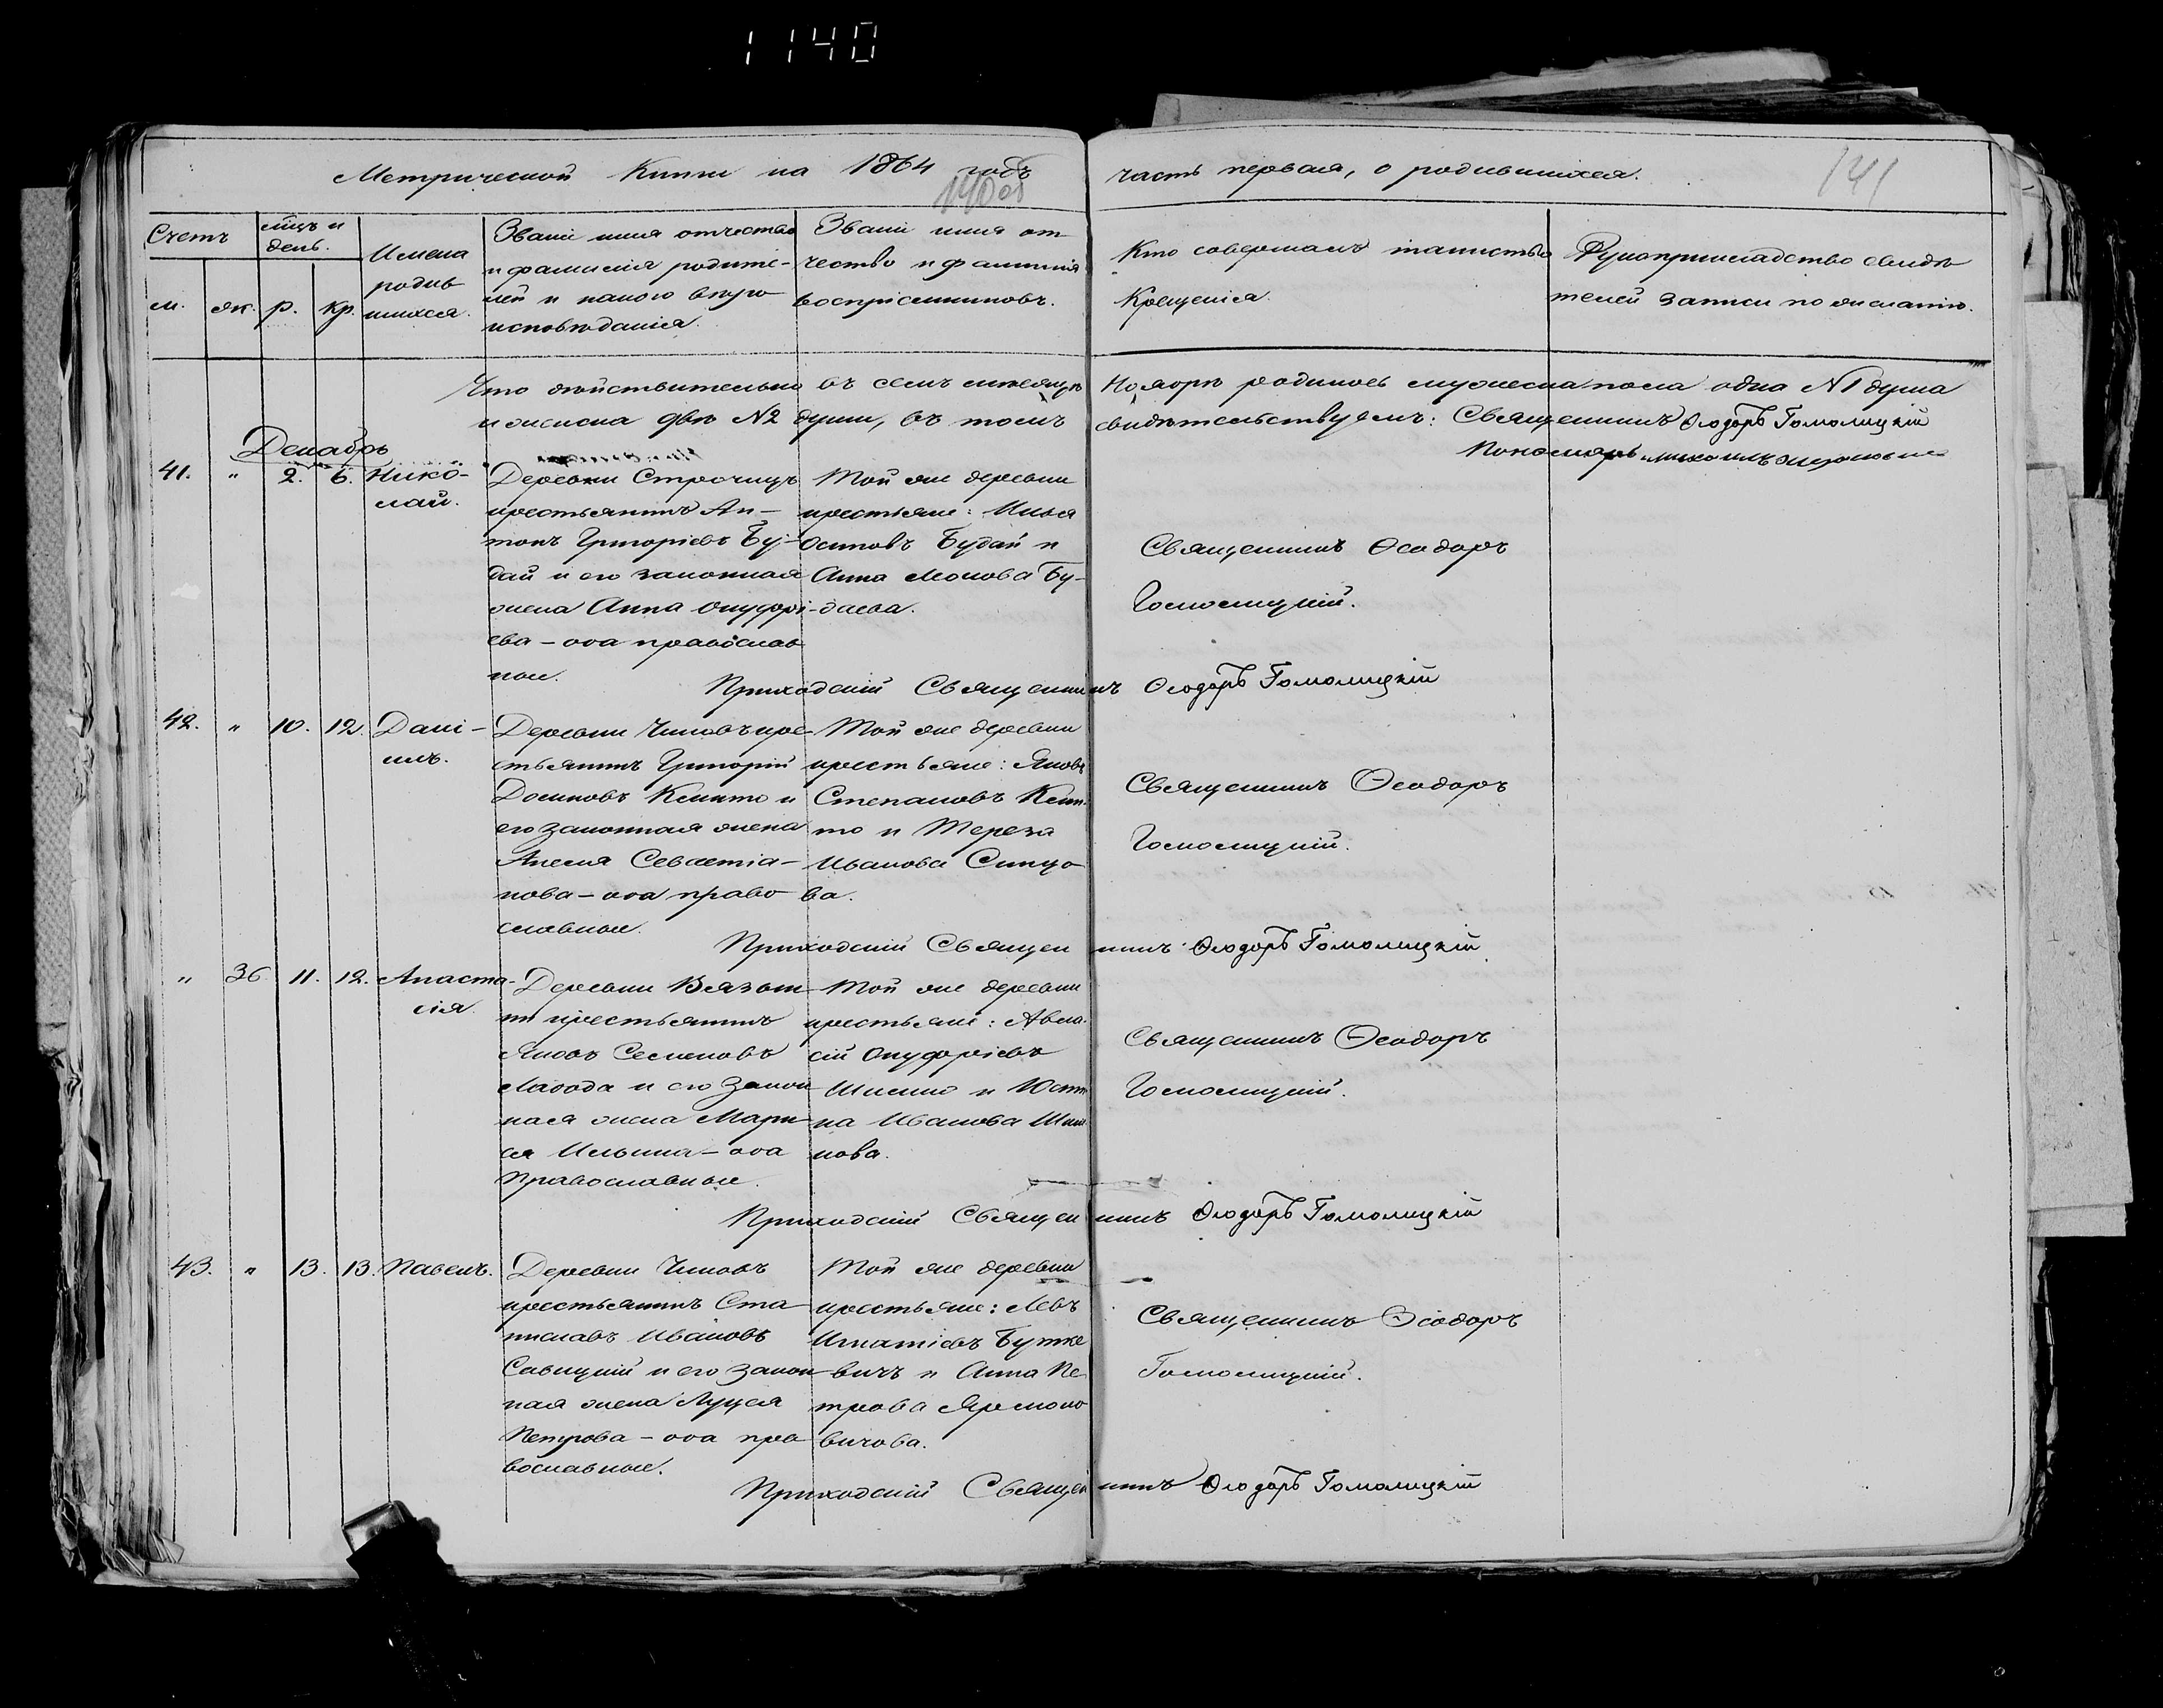 1140
Метрической Книги на 1864 годъ часть первая, о родившихся.
140об
141
Счетъ
мцъ и
день.
м. жк. р. кр.
Имена
родив
шихся.
Званiе имя отчество
и фамилiя родите-
лей и какого вѣро
исповѣданiя.
Званiе имя от
чество и фамилiя
воспрiемниковъ.
Кто совершалъ таинство
Крещенiя.
Рукоприкладство свидѣ
телей записи по желанiю.
Что дѣйствительно въ семъ мѣсяцѣ Ноябрѣ родилось мужеска пола одна №1 душа
и женска двѣ №2 души, въ томъ свидѣтельствуемъ: Священникъ Ѳеодоръ Гомолицкiй
Пономарь Михаилъ
Декабрь
41. " 2. 6. Нико-
лай.
Деревни Строчицъ
крестьянинъ Ан-
тонъ Григорiевъ Бу-
дай и его законная
жена Анна Онуфрi-
ева - оба православ
ные.
Той же деревни
крестьяне: Илья
Осиповъ Будай и
Анна Бу-
даева.
Священникъ Ѳеодоръ
Гомолицкiй.
Приходскiй Священникъ Ѳеодоръ Гомолицкiй
42. " 10. 12. Данi-
илъ.
Деревни Чиковъ кре-
стьянинъ Григорiй
и
его законная жена
Севастiа-
нова - оба право
славные.
Той же деревни
крестьяне: Яковъ
Степановъ
то и Тереза
Иванова
ва.
Священникъ Ѳеодоръ
Гомолицкiй.
Приходскiй Священникъ Ѳеодоръ Гомолицкiй
" 36 11. 12. Анаста-
сiя.
Деревни Вязын
крестьянинъ
Яковъ Семеновъ
и его Закон
ная жена Мари
я Ильина - оба
Православные.
Той же деревни
крестьяне: Авла-
сiй Онуфрiевъ
Шишко и Юсти
на Иванова Шиш
кова.
Священникъ Ѳеодоръ
Гомолицкiй.
Приходскiй Священникъ Ѳеодоръ Гомолицкiй
43. " 13. 13. Павелъ.
Деревни Чиковъ
крестьянинъ Ста
ниславъ Ивановъ
Савицкiй и его закон
ная жена Луцея
Петрова - оба пра
вославные.
Той же деревни
крестьяне: Левъ
Игнатiевъ Бутке
вичъ и Анна Пе
трова Яремко
вичова.
Священникъ Ѳеодоръ
Гомолицкiй.
Приходскiй Священникъ Ѳеодоръ Гомолицкiй